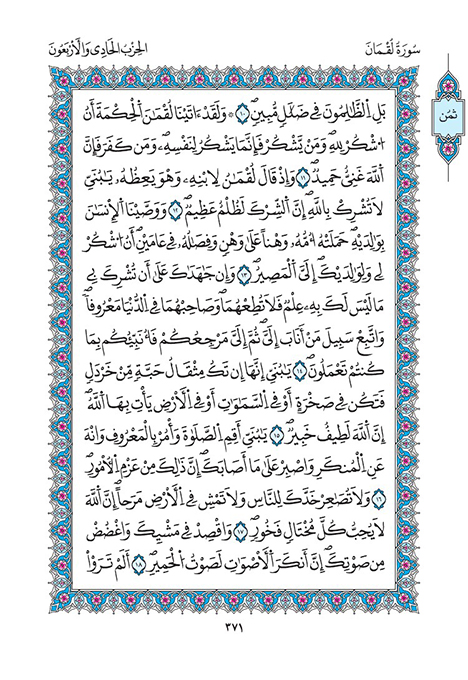 سُورَةُ لُقْمَانَ
الحِزْبُ الحَادِي وَالأَرْبَعُونَ
ثُمُن
بَلِ اِ۬لظَّٰلِمُونَ فِے ضَلَٰلٖ مُّبِينٖۖ ١٠ ۞ وَلَقَدَ اٰتَيْنَا لُقْمَٰنَ اَ۬لْحِكْمَةَ أَنُ
اُ۟شْكُرْ لِلهِۖ وَمَنْ يَّشْكُرْ فَإِنَّمَا يَشْكُرُ لِنَفْسِهِۦۖ وَمَن كَفَرَ فَإِنَّ
اَ۬للَّهَ غَنِيٌّ حَمِيدٞۖ ١١ وَإِذْ قَالَ لُقْمَٰنُ لِابْنِهِۦ وَهُوَ يَعِظُهُۥ يَٰبُنَيِّ
لَا تُشْرِكْ بِاللَّهِۖ إِنَّ اَ۬لشِّرْكَ لَظُلْمٌ عَظِيمٞۖ ١٢ وَوَصَّيْنَا اَ۬لْإِنسَٰنَ
بِوَٰلِدَيْهِۖ حَمَلَتْهُ أُمُّهُۥ وَهْناً عَلَىٰ وَهْنٖ وَفِصَٰلُهُۥ فِے عَامَيْنِۖ أَنُ اُ۟شْكُرْ
لِے وَلِوَٰلِدَيْكَۖ إِلَيَّ اَ۬لْمَصِيرُۖ ١٣ وَإِن جَٰهَدَٰكَ عَلَىٰ أَن تُشْرِكَ بِے
مَا لَيْسَ لَكَ بِهِۦ عِلْمٞ فَلَا تُطِعْهُمَاۖ وَصَاحِبْهُمَا فِے اِ۬لدُّنْيَا مَعْرُوفاٗۖ
وَاتَّبِعْ سَبِيلَ مَنَ اَنَابَ إِلَيَّۖ ثُمَّ إِلَيَّ مَرْجِعُكُمْ فَأُنَبِّئُكُم بِمَا
كُنتُمْ تَعْمَلُونَۖ ١٤ يَٰبُنَيِّ إِنَّهَا إِن تَكُ مِثْقَالُ حَبَّةٖ مِّنْ خَرْدَلٖ
فَتَكُن فِے صَخْرَةٍ اَوْ فِے اِ۬لسَّمَٰوَٰتِ أَوْ فِے اِ۬لْأَرْضِ يَأْتِ بِهَا اَ۬للَّهُۖ
إِنَّ اَ۬للَّهَ لَطِيفٌ خَبِيرٞۖ ١٥ يَٰبُنَيِّ أَقِمِ اِ۬لصَّلَوٰةَ وَأْمُرْ بِالْمَعْرُوفِ وَانْهَ
عَنِ اِ۬لْمُنكَرِ وَاصْبِرْ عَلَىٰ مَا أَصَابَكَۖ إِنَّ ذَٰلِكَ مِنْ عَزْمِ اِ۬لْأُمُورِۖ
١٦ وَلَا تُصَٰعِرْ خَدَّكَ لِلنَّاسِ وَلَا تَمْشِ فِے اِ۬لْأَرْضِ مَرَحاًۖ إِنَّ اَ۬للَّهَ
لَا يُحِبُّ كُلَّ مُخْتَالٖ فَخُورٖۖ ١٧ وَاقْصِدْ فِے مَشْيِكَ وَاغْضُضْ
مِن صَوْتِكَۖ إِنَّ أَنكَرَ اَ۬لْأَصْوَٰتِ لَصَوْتُ اُ۬لْحَمِيرِۖ ١٨ أَلَمْ تَرَوْاْ
٣٧١